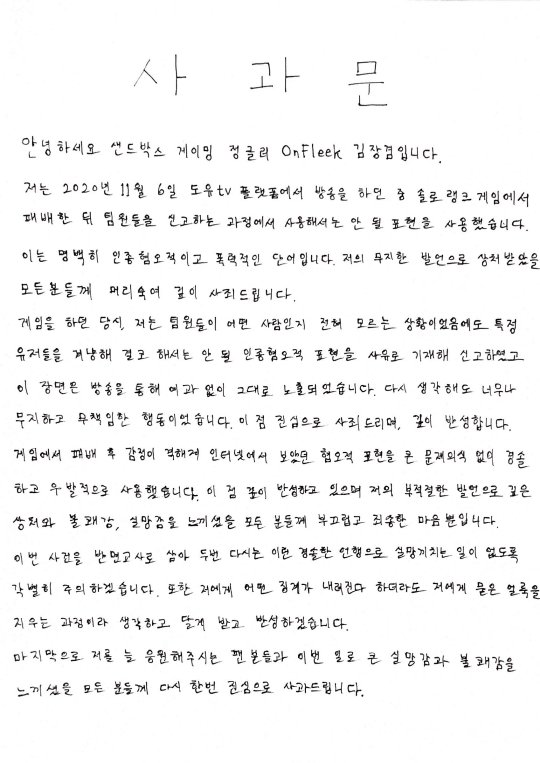 사 과 문
안녕하세요 샌드박스 게이밍 정글러 OnFleek 김장겸입니다.
저는 2020년 11월 6일 도유tv 플랫폼에서 방송을 하던 중 솔로랭크게임에서
패배한 뒤 팀원들을 신고하는 과정에서 사용해서는 안 될 표현을 사용했습니다.
이는 명백히 인종혐오적이고 폭력적인 단어입니다. 저의 무지한 발언으로 상처받았을
모든분들께 머리숙여 깊이 사죄드립니다.
게임을 하던 당시, 저는 팀원들이 어떤 사람인지 전혀 모르는 상황이었음에도 특정
유저들을 겨냥해 결코 해서는 안 될 인종혐오적 표현을 사유로 기재해 신고하였고
이 장면은 방송을 통해 여과 없이 그대로 노출되었습니다. 다시 생각해도 너무나
무지하고 무책임한 행동이었습니다. 이 점 진심으로 사죄드리며, 깊이 반성합니다.
게임에서 패배 후 감정이 격해져 인터넷에서 보았던 혐오적 표현을 큰 문제의식 없이 경솔
하고 우발적으로 사용했습니다. 이 점 깊이 반성하고 있으며 저의 부적절한 발언으로 깊은
상처와 불쾌감, 실망감을 느끼셨을 모든 분들께 부끄럽고 죄송한 마음뿐입니다.
이번 사건을 반면교사로 삼아 두번 다시는 이런 경솔한 언행으로 실망끼치는 일이 없도록
각별히 주의하겠습니다. 또한 저에게 어떤 징계가 내려진다 하더라도 저에게 묻은 얼룩을
지우는 과정이라 생각하고 달게 받고 반성하겠습니다.
마지막으로 저를 늘 응원해주시는 팬분들과 이번 일로 큰 실망감과 불쾌감을
느끼셨을 모든 분들께 다시 한번 진심으로 사과드립니다.